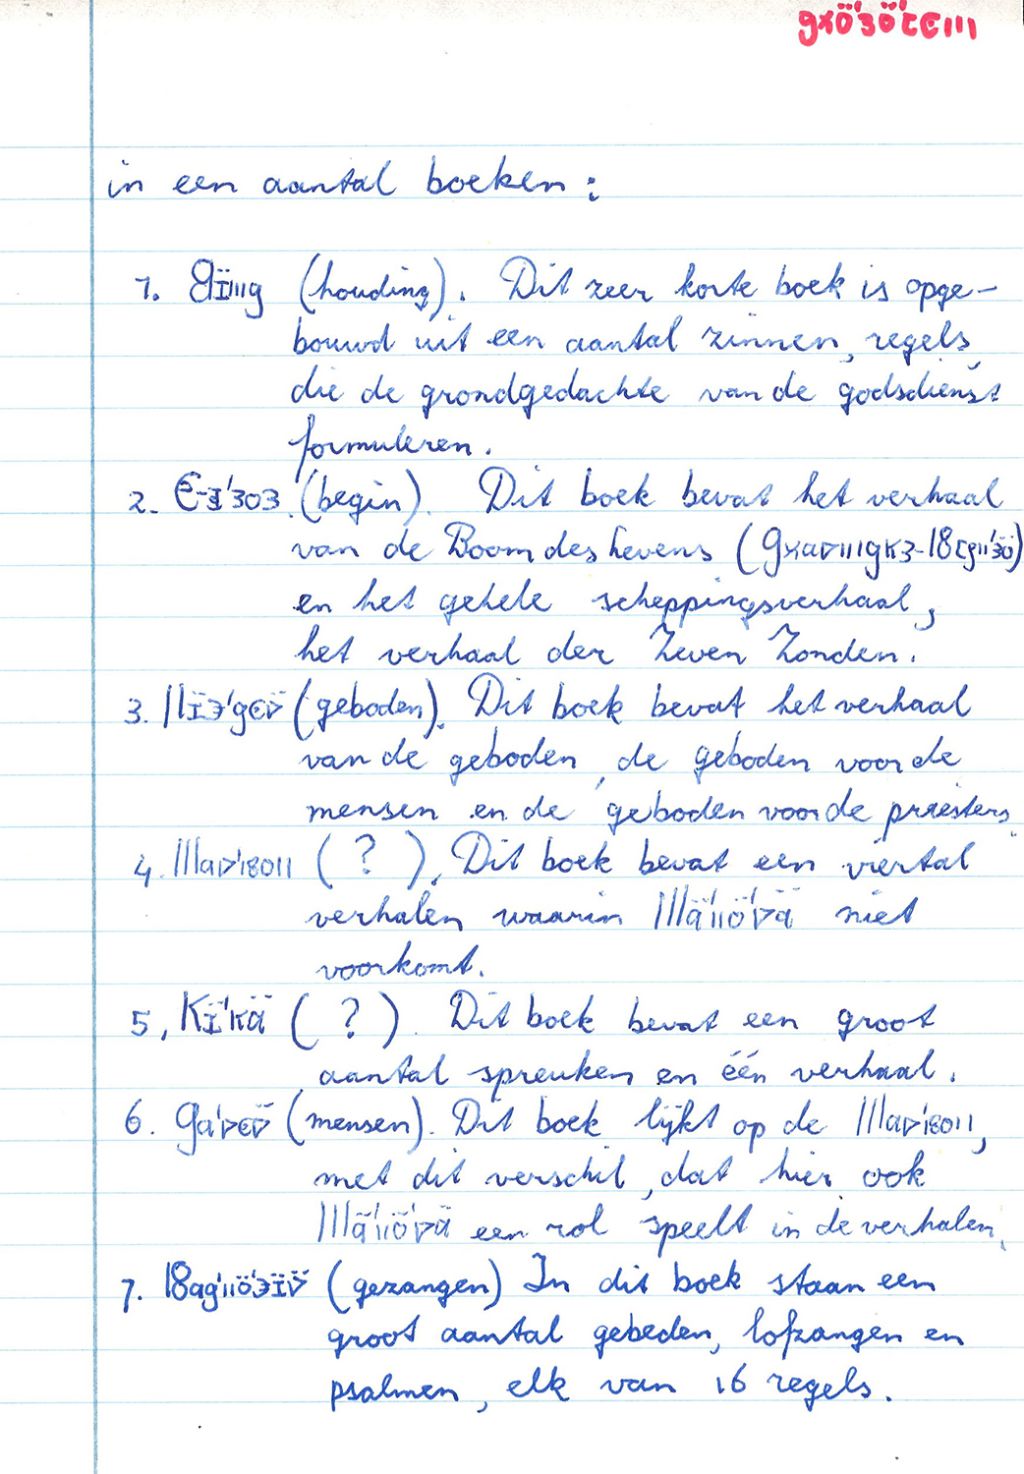 in een aantal boeken:
1. (houding). Dit zeer korte boek is opge-
bouwd uit een aantal zinnen, regels,
die de grondgedachte van de godsdienst
formuleren.
2. (begin). Dit boek bevat het verhaal
van de Boom des Levens (
en het gehele scheppingsverhaal,
het verhaal der Zeven Zonden.
3. (geboden). Dit boek bevat het verhaal
van de geboden, de geboden voor de
mensen en de geboden voor de priesters.
4. ( ? ). Dit boek bevat een viertal
verhalen waarin niet
voorkomt.
5. ( ? ). Dit boek bevat een groot
aantal spreuken en één verhaal.
6. (mensen). Dit boek lijkt op de
met dit verschil, dat hier ook
een rol speelt in de verhalen.
7. (gezangen) In dit boek staan een
groot aantal gebeden, lofzangen en
psalmen, elk van 16 regels.